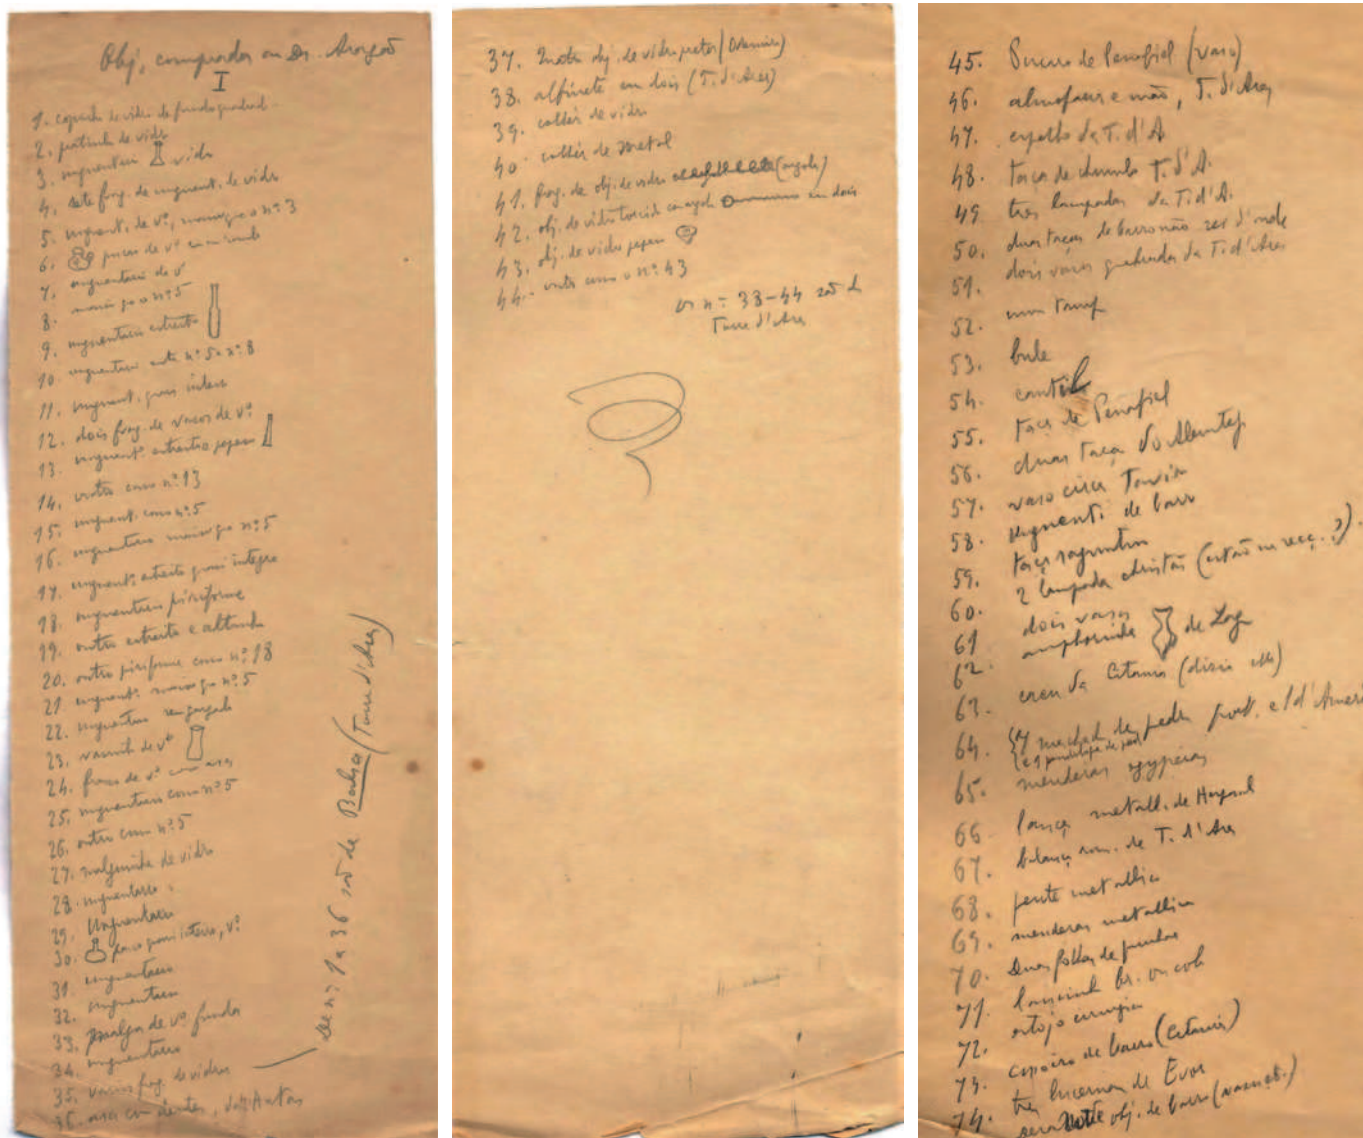 Obj. comprados ao Dr. Aragão
I
1. copinho de vidro de fundo quadrad.
2. patinho de vidro
3. unguentari vidro
4. sete frag. de unguent. de vidro
5. unguent. de vº, maior que o nº 3
6. de vº
7. unguentario de vº
8. maior que o nº 5
9. unguentario estreito
10. unguentario nº 5 nº 8
11. unguent. quasi inteiro
12. dois frag. de vasos de vº
13. unguentº estreito pequeno
14. outro como nº 13
15. unguent. como nº 5
16. unguentario maior que nº 5
17. unguentº estreito quasi integro
18. unguentario piriforme
19. outro estreito e altinho
20. outro piriforme como nº 18
21. unguentº maior que nº 5
22. unguentario
23. vasinho de vº
24. frasco de vº com asas
25. unguentario como nº 5
26. outro como nº 5
27. malguinha de vidro
28. unguentario
29. Unguentario
30. frasco quasi inteiro, vº
31. unguentario
32. unguentario
33. malga de vº funda
34. unguentario
35. varios frag. de vidros
36. asa com dentes,
De nº 1 a 36 são de Balsa (Torre d'Ares)
37. obj. de vidro preto
38. alfinete em dois (T. d'Ares)
39. colhér de vidro
40. colhér de metal
41. frag. de obj. de vidro (argola)
42. obj. de vidro torcido com argola em dois
43. obj. de vidro pequeno
44. outro como o nº 43
os nos 33-44 são de
Torre d'Ares
45. Pucaro de Penafiel (vaso)
46. almofariz e mão, T. d'Ares
47. espelho da T. d'A
48. taça de chumbo T. d'A.
49. tres lampadas da T. d'A.
50. duas taças de barro não sei d'onde
51. dois vasos quebrados da T. d'Ares
52. uma tampa
53. bule
54. cantil
55. taça de Penafiel
56. duas taças do Alemtejo
57. vaso Tavira
58. unguent. de barro
59. taça saguntina
60. 2 lampadas christãs (estão na secç. ?).
61 dois vasos
62. amphorinha de Lagos
63. da Citania (dizia elle)
64. machad. de pedra port. e 1 d'Ameri
65. egypcias
66. lança metall. de
67. balança rom. de T. d'Ares
68. pente metallico
69. metallica
70. duas folhas de punhal
71. br. ou cob
72. estojo cirurgico
73. de barro (Citania)
74. tres lucernas de Evora
obj. de barro